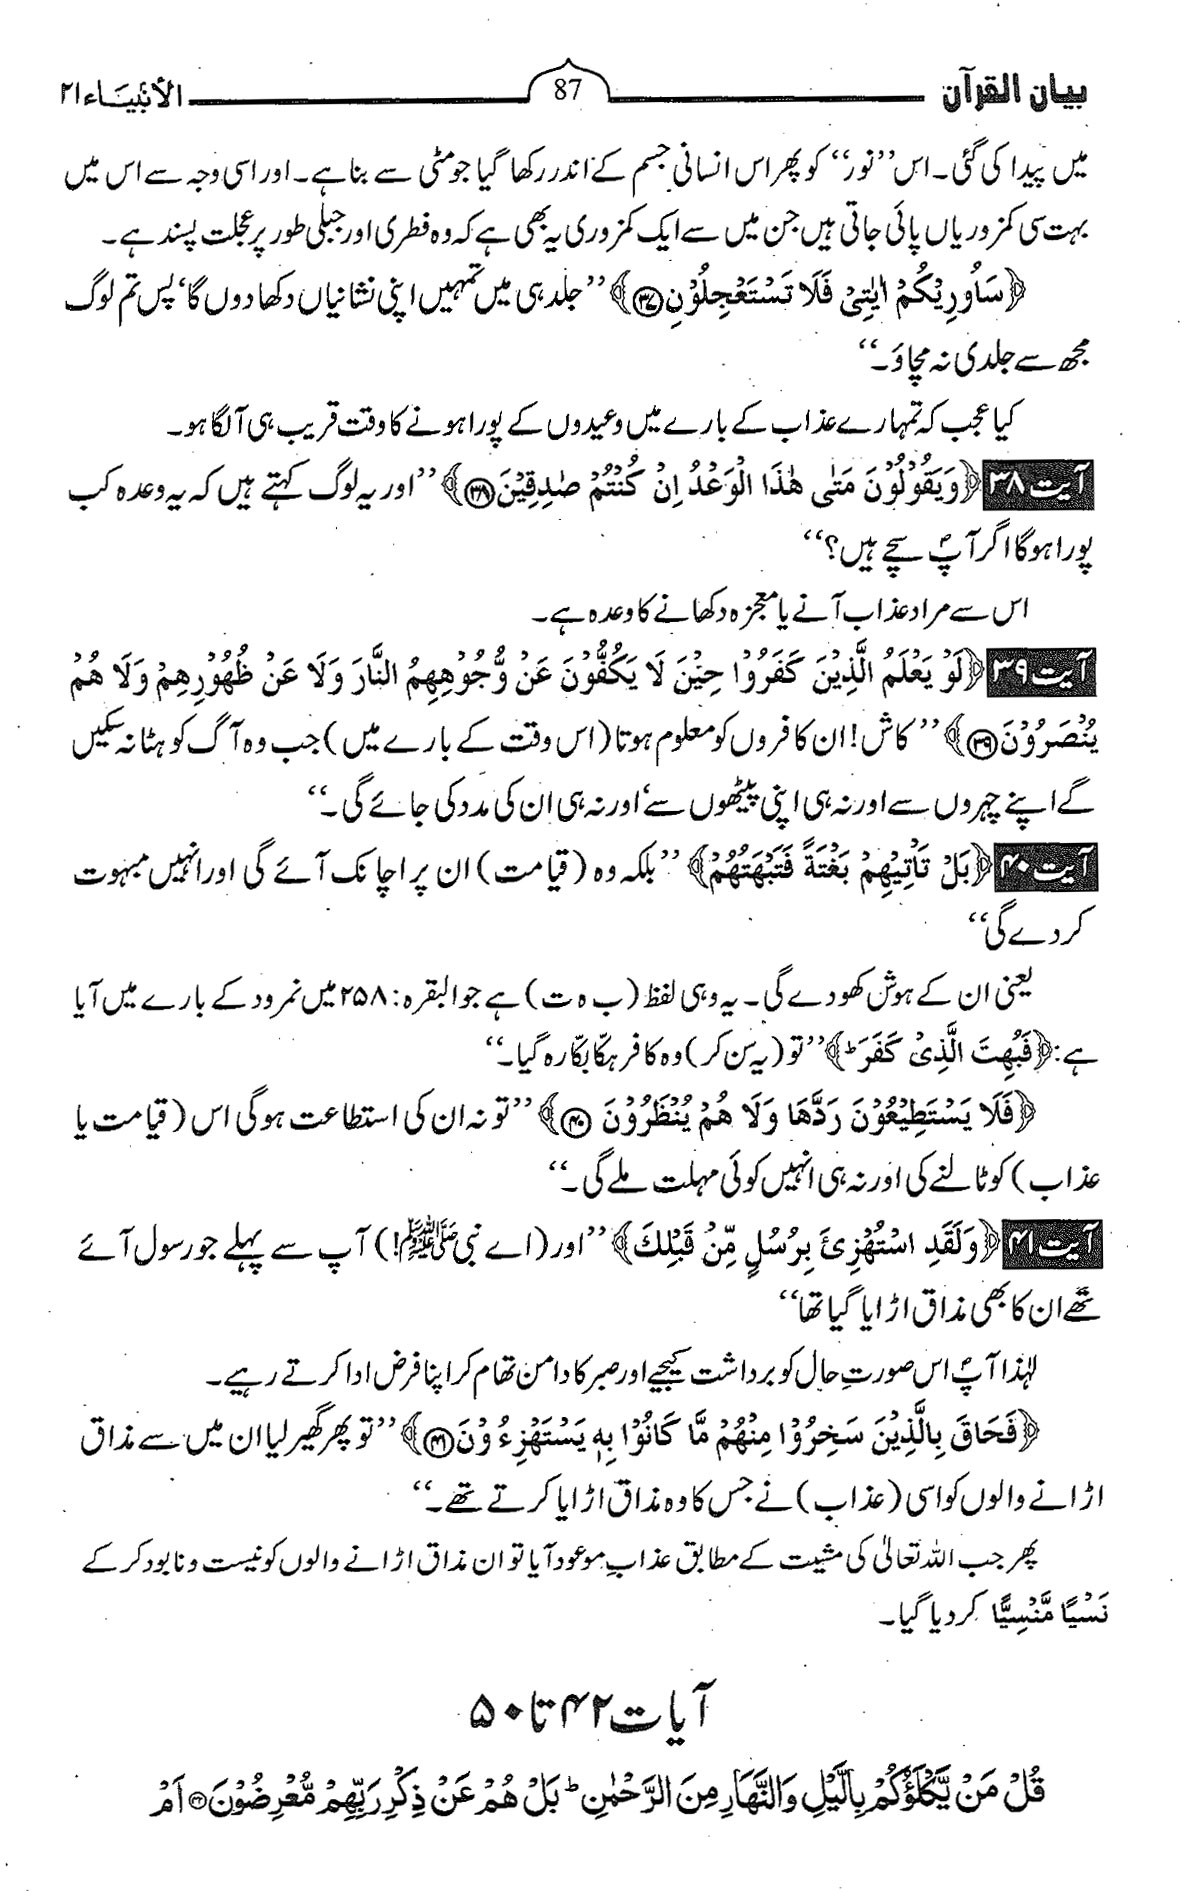 بیان القرآن 87 الأنبیاء ۲۱
میں پیدا کی گئی۔ اس ’’نور‘‘ کو پھر اس انسانی جسم کے اندر رکھا گیا جو مٹی سے بنا ہے۔ اور اسی وجہ سے اس میں
بہت سی کمزوریاں پائی جاتی ہیں جن میں سے ایک کمزوری یہ بھی ہے کہ وہ فطری اور جبلی طور پر عجلت پسند ہے۔
﴿سَاُورِیْکُمْ اٰیٰتِیْ فَلَا تَسْتَعْجِلُوْنِ ﴿۳۷﴾﴾ ’’جلد ہی میں تمہیں اپنی نشانیاں دکھا دوں گا‘ پس تم لوگ
مجھ سے جلدی نہ مچاؤ۔‘‘
کیا عجب کہ تمہارے عذاب کے بارے میں وعیدوں کے پورا ہونے کا وقت قریب ہی آ لگا ہو۔
آیت ۳۸ ﴿وَیَقُوْلُوْنَ مَتٰی ہٰذَا الْوَعْدُ اِنْ کُنْتُمْ صٰدِقِیْنَ ﴿۳۸﴾﴾ ’’اور یہ لوگ کہتے ہیں کہ یہ وعدہ کب
پورا ہو گا اگر آپؐ سچے ہیں؟‘‘
اس سے مراد عذاب آنے یا معجزہ دکھانے کا وعدہ ہے۔
آیت ۳۹ ﴿لَوْ یَعْلَمُ الَّذِیْنَ کَفَرُوْا حِیْنَ لَا یَکُفُّوْنَ عَنْ وُّجُوْہِہِمُ النَّارَ وَلَا عَنْ ظُہُوْرِہِمْ وَلَا ہُمْ
یُنْصَرُوْنَ ﴿۳۹﴾﴾ ’’کاش! ان کافروں کو معلوم ہوتا (اس وقت کے بارے میں) جب وہ آگ کو ہٹا نہ سکیں
گے اپنے چہروں سے اور نہ ہی اپنی پیٹھوں سے‘ اور نہ ہی ان کی مدد کی جائے گی۔‘‘
آیت ۴۰ ﴿بَلْ تَاْتِیْہِمْ بَغْتَۃً فَتَبْہَتُہُمْ﴾ ’’بلکہ وہ (قیامت) ان پر اچانک آئے گی اور انہیں مبہوت
کر دے گی‘‘
یعنی ان کے ہوش کھو دے گی۔ یہ وہی لفظ (ب ہ ت) ہے جو البقرہ: ۲۵۸ میں نمرود کے بارے میں آیا
ہے: ﴿فَبُہِتَ الَّذِیْ کَفَرَ ؕ﴾ ’’تو (یہ سن کر) وہ کافر ہکّا بکّا رہ گیا۔‘‘
﴿فَلَا یَسْتَطِیْعُوْنَ رَدَّہَا وَلَا ہُمْ یُنْظَرُوْنَ ﴿۴۰﴾﴾ ’’تو نہ ان کی استطاعت ہو گی اس (قیامت یا
عذاب) کو ٹالنے کی اور نہ ہی انہیں کوئی مہلت ملے گی۔‘‘
آیت ۴۱ ﴿وَلَقَدِ اسْتُہْزِئَ بِرُسُلٍ مِّنْ قَبْلِکَ﴾ ’’اور (اے نبی ﷺ!) آپ سے پہلے جو رسول آئے
تھے ان کا بھی مذاق اڑایا گیا تھا‘‘
لہٰذا آپؐ اس صورتِ حال کو برداشت کیجیے اور صبر کا دامن تھام کر اپنا فرض ادا کرتے رہیے۔
﴿فَحَاقَ بِالَّذِیْنَ سَخِرُوْا مِنْہُمْ مَّا کَانُوْا بِہٖ یَسْتَہْزِءُوْنَ ﴿۴۱﴾﴾ ’’تو پھر گھیر لیا ان میں سے مذاق
اڑانے والوں کو اسی (عذاب) نے جس کا وہ مذاق اڑایا کرتے تھے۔‘‘
پھر جب اللہ تعالیٰ کی مشیت کے مطابق عذابِ موعود آیا تو ان مذاق اڑانے والوں کو نیست و نابود کر کے
نَسْیًا مَّنْسِیًّا کر دیا گیا۔
آیات ۴۲ تا ۵۰
قُلْ مَنْ یَّکْلَؤُکُمْ بِالَّیْلِ وَالنَّہَارِ مِنَ الرَّحْمٰنِ ؕ بَلْ ہُمْ عَنْ ذِکْرِ رَبِّہِمْ مُّعْرِضُوْنَ ﴿۴۲﴾ اَمْ